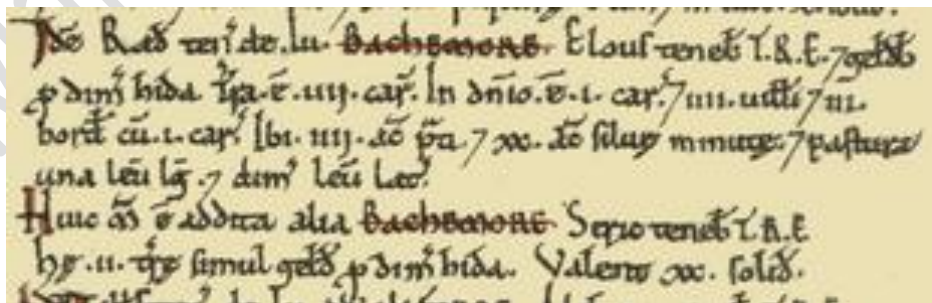 Idē Rad̄ ten' de. lu. BACHEMORE. Elouf teneb̄ T.R.E. ⁊ geldb̄
p dim̄ hida. Tr̄a. ē. iiij. car̄. In dn̄io. ē. i. car̄. ⁊ iiii. uill̄i ⁊ iii.
bord̄ cū. i. car̄. Ibi. iiij. ac̄ p̄ti. ⁊ xx. ac̄ siluę minutę. ⁊ pastura
una leū lḡ. ⁊ dim' leū lat̄.
Huic m̄ ē addita alia BACHEMORE Serio teneb̄ T.R.E
hę. ii. tr̄ę simul geld̄ p dim̄ hida. Valent xx. solid̄.